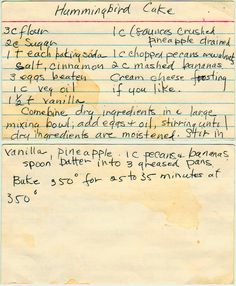 Hummingbird Cake
3c flour
1c (8 ounces crushed
pineapple drained
2c sugar
1t each baking soda
1c chopped pecans
salt, cinnamon
2c mashed bananas
3 eggs beaten
Cream cheese frosting
1c veg oil
if you like.
1½ t vanilla
Combine dry ingredients in a large
mixing bowl; add eggs + oil, stirring until
dry ingredients are moistened. Stir in
vanilla, pineapple, 1c pecans & bananas
spoon batter into 3 greased pans.
Bake 350° for 25 to 35 minutes at
350°